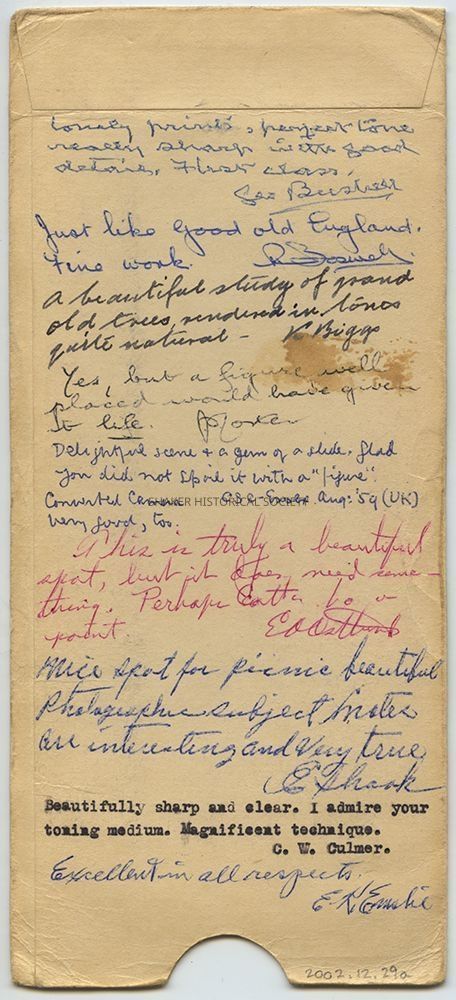 Lovely prints, perfect tone
really sharp with good
details. First class.
Geo
Just like good old England.
Fine work. R. Boswell.
A beautiful study of grand
old trees, rendered in tones
quite natural - K Biggs
Yes, but a figure well
placed would have given
it life.
Delightful scene + a gem of a slide. Glad
you did not spoil it with a "figure".
Converted Aug: '59 (UK)
SHAKER HISTORICAL SOCIETY
Very good, too.
This is truly a beautiful
spot, but it does need some-
thing. Perhaps to a
point.
Nice spot for picnic beautiful
Photographic subject notes
are interesting and very true
E Shook
Beautifully sharp and clear. I admire your
toning medium. Magnificent technique.
C. W. Culmer.
Excellent in all respects.
E. K. Emslie
2002.12.29a